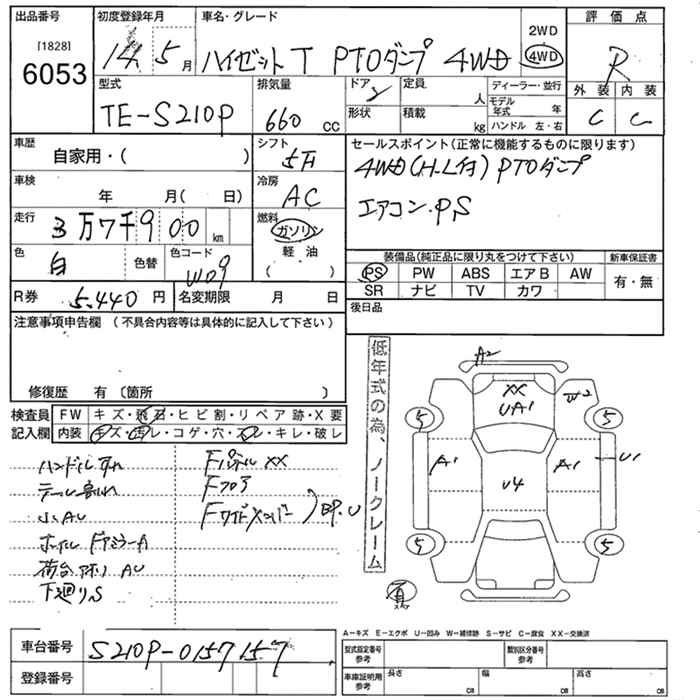 出品番号 初度登録年月 車名・グレード 評価点
[1828]
6053
14年 5月 ハイゼットT PTOダンプ 4WD
2WD
4WD
R
型式 排気量 ドア 定員 ディーラー・並行 外装 内装
TE-S210P 660cc 2 人 モデル年式 年 C C
形状 積載 kg ハンドル 左・右
車歴 シフト セールスポイント(正常に機能するものに限ります)
自家用・( ) 5F 4WD(H.L付)PTOダンプ
車検 冷房
年 月( 日) AC エアコン・PS
走行 燃料
3万7千900km ガソリン
軽油
( )
色 色替 色コード 装備品(純正品に限り丸をつけて下さい) 新車保証書
白 W09 PS PW ABS エアB AW 有・無
SR ナビ TV カワ
R券 5.440円 名変期限 月 日 後日品
注意事項申告欄 (不具合内容等は具体的に記入して下さい)
修復歴 有 〔箇所 〕
検査員 FW キズ・飛石・ヒビ割・リペア跡・X要
記入欄 内装 キズ・汚レ・コゲ・穴・スレ・キレ・破レ
ハンドルすれ Fパネル XX
テール割れ Fフロア
小AU
下廻りS
低年式の為、ノークレーム
A2
XX
UA1
W2
5 5
A1 U4 A1 U1
5 5
A-キズ E-エクボ U-凹み W-補修跡 S-サビ C-腐食 XX-交換済
車台番号 S210P-0157157
登録番号
型式指定番号 参考 類別区分番号 参考
車庫証明用 参考 長さ cm 幅 cm 高さ cm